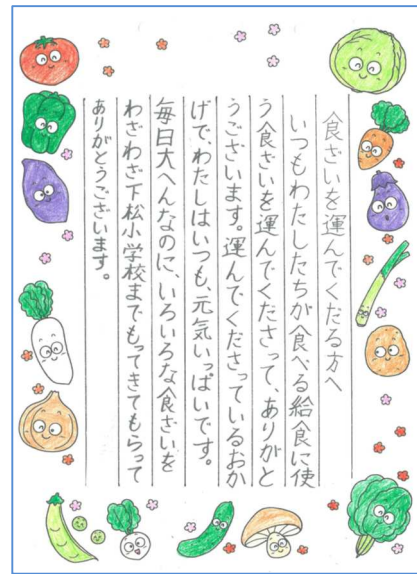 食ざいを運んでくだる方へ
いつもわたしたちが食べる給食に使
う食ざいを運んでくださって、ありがと
うございます。運んでくださっているおか
げで、わたしはいつも、元気いっぱいです。
毎日大へんなのに、いろいろな食ざいを
わざわざ下松小学校までもってきてもらって
ありがとうございます。